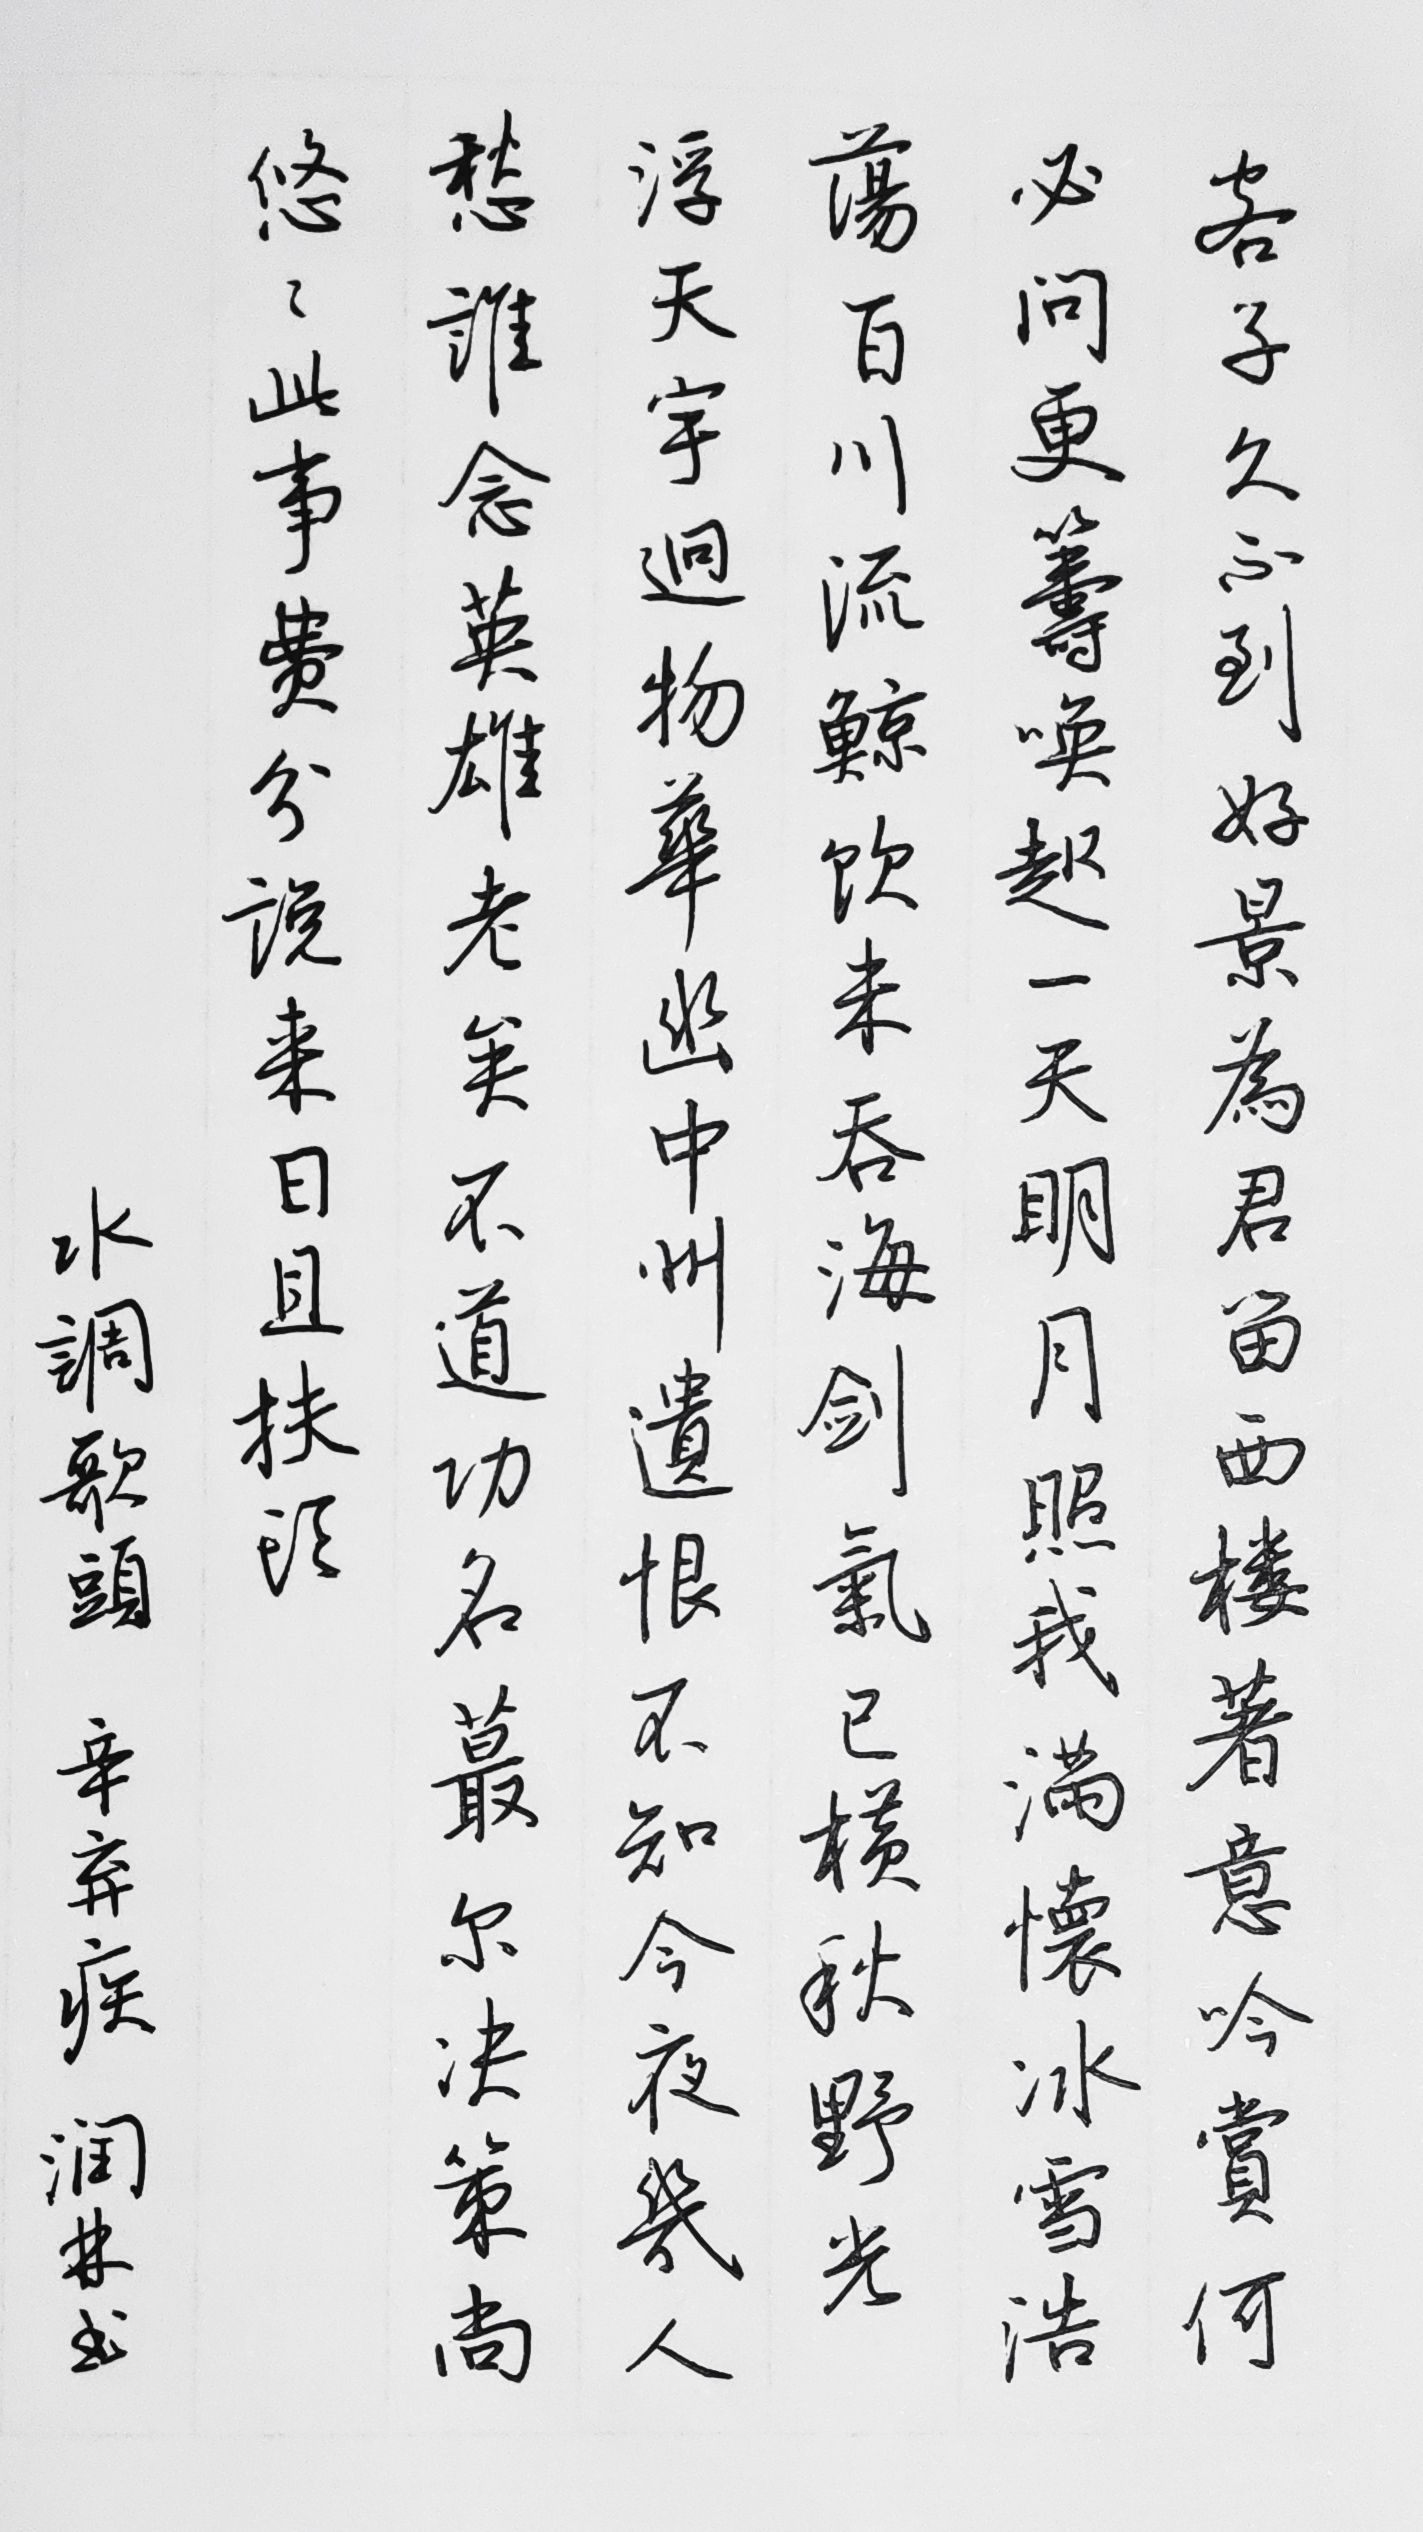 客子久不到好景為君留西楼著意吟賞何
必问更籌唤起一天明月照我滿懷冰雪浩
蕩百川流鲸飲未吞海剑氣已横秋野光
浮天宇迥物華幽中州遺恨不知今夜幾人
愁誰念英雄老矣不道功名蕞尔决策尚
悠々此事费分说来日且扶头
水調歌頭 辛弃疾 润林书